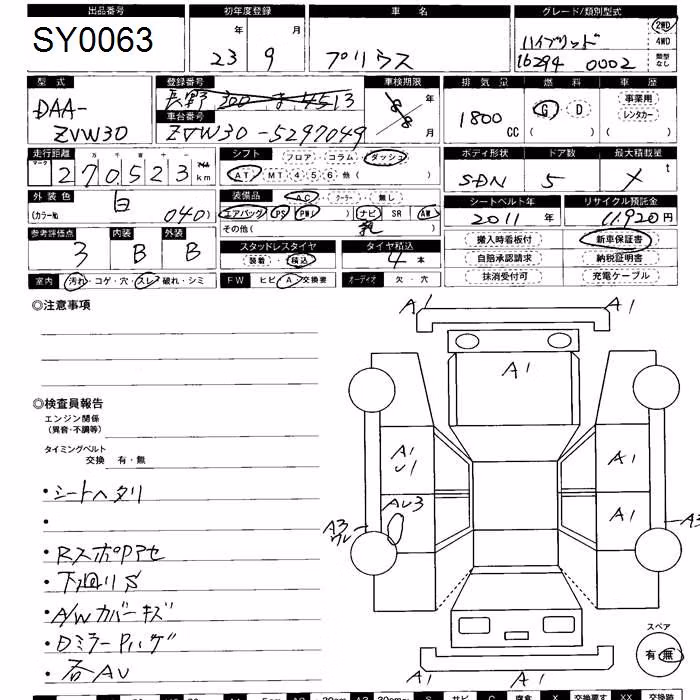 出品番号 初年度登録 車名 グレード/類別型式
SY0063 23年 9月 プリウス ハイブリッド 16294 0002 2WD 4WD 類型なし
型式 登録番号 車検期限 排気量 燃料 車歴
DAA-ZVW30 長野 300 ま 4513 年 月 1800CC G D ( ) 事業用 レンタカー ( )
車台番号
ZVW30-5297049
走行距離 シフト フロア コラム ダッシュ ボディ形状 ドア数 最大積載量
マーク 十万千百十一 マイル
270523km AT MT 4 5 6 他( ) SDN 5 t
外装色 装備品 AC クーラー 無し シートベルト年 リサイクル預託金
白 (カラーNo 040) エアバッグ PS PW ( ) ナビ SR AW 2011年 11,920円
その他( )
参考評価点 内装 外装 スタッドレスタイヤ タイヤ積込 搬入時看板付 新車保証書
3 B B 装着・積込 4本 自賠承認請求 納税証明書
抹消受付可 充電ケーブル
室内 汚れ・コゲ・穴・スレ・破れ・シミ FW ヒビ A 交換要 オーディオ 欠・穴
◎注意事項
A1 A1
A1
◎検査員報告
エンジン関係
(異音・不調等)
タイミングベルト
交換 有・無
A1 U1 A1
・シートヘタリ
AU3 A1
A3 A3
・
・RスポPアセ
・下廻りS
・A/Wカバーキズ
・DミラーPハゲ
・各AU
スペア
有・無
A1 A1